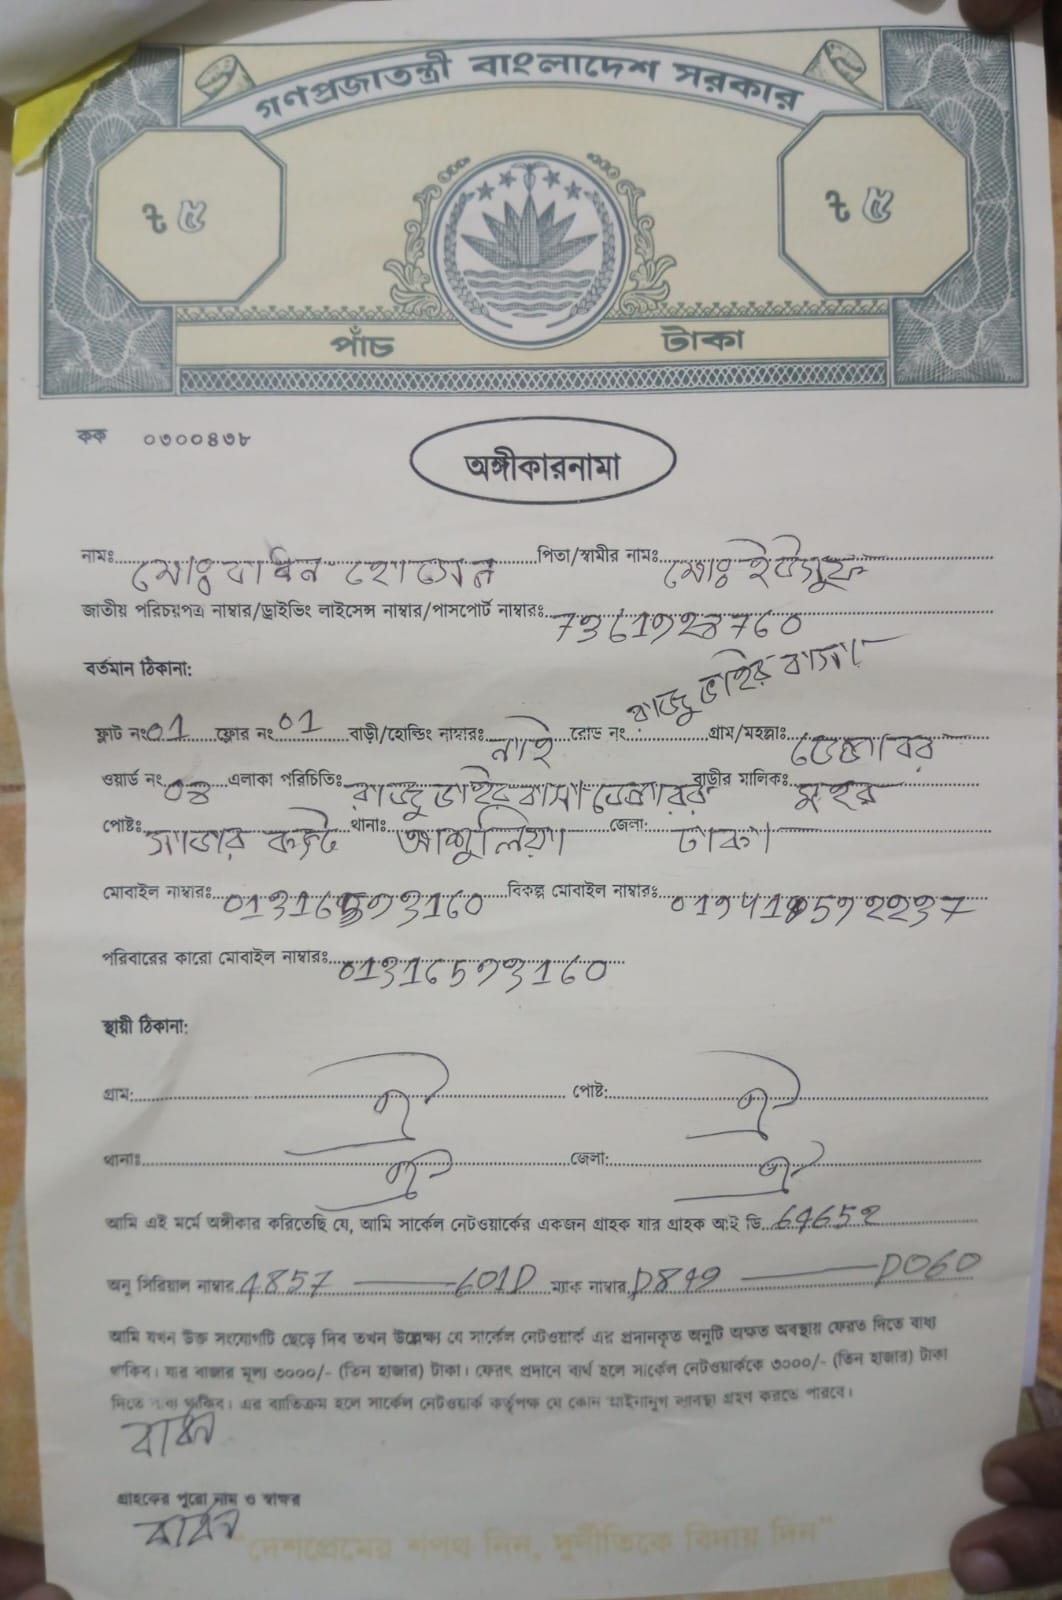 গণপ্রজাতন্ত্রী বাংলাদেশ সরকার
৳ ৫ ৳ ৫
পাঁচ টাকা
কক ০৩০০৪৩৮
অঙ্গীকারনামা
নামঃ মোঃ বাধন হোসেন পিতা/স্বামীর নামঃ মোঃ ইউসুফ
জাতীয় পরিচয়পত্র নাম্বার/ড্রাইভিং লাইসেন্স নাম্বার/পাসপোর্ট নাম্বারঃ
বর্তমান ঠিকানা:
রাজু ভাইর বাসা
ফ্লাট নংঃ 01 ফ্লোর নংঃ 01 বাড়ী/হোল্ডিং নাম্বারঃ নাই রোড নং গ্রাম/মহল্লাঃ
ওয়ার্ড নং 04 এলাকা পরিচিতিঃ রাজু ভাইর বাসা বাড়ীর মালিকঃ
পোষ্টঃ সাভার থানাঃ আশুলিয়া জেলা: ঢাকা
মোবাইল নাম্বারঃ বিকল্প মোবাইল নাম্বারঃ
পরিবারের কারো মোবাইল নাম্বারঃ 01316593160
স্থায়ী ঠিকানা:
গ্রাম: ঐ পোষ্ট: ঐ
থানাঃ ঐ জেলা: ঐ
আমি এই মর্মে অঙ্গীকার করিতেছি যে, আমি সার্কেল নেটওয়ার্কের একজন গ্রাহক যার গ্রাহক আই ডি
অনু সিরিয়াল নাম্বার 4857 — 601D ম্যাক নাম্বার — D060
আমি যখন উক্ত সংযোগটি ছেড়ে দিব তখন উল্লেক্ষ্য যে সার্কেল নেটওয়ার্ক এর প্রদানকৃত অনুটি অক্ষত অবস্থায় ফেরত দিতে বাধ্য
থাকিব। যার বাজার মূল্য ৩০০০/- (তিন হাজার) টাকা। ফেরৎ প্রদানে ব্যর্থ হলে সার্কেল নেটওয়ার্ককে ৩০০০/- (তিন হাজার) টাকা
দিতে বাধ্য থাকিব। এর ব্যতিক্রম হলে সার্কেল নেটওয়ার্ক কর্তৃপক্ষ যে কোন আইনানুগ ব্যবস্থা গ্রহণ করতে পারবে।
বাধন
গ্রাহকের পুরো নাম ও স্বাক্ষর
বাধন
"দেশপ্রেমের শপথ নিন, দুর্নীতিকে বিদায় দিন"